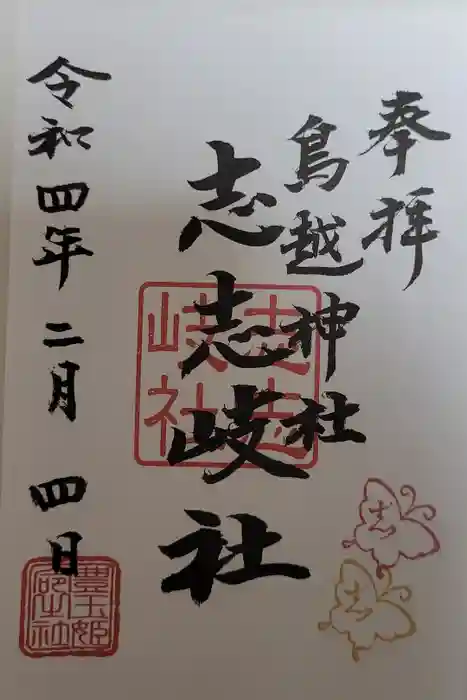 奉拝
鳥越神社
志志岐社
志志岐社
令和四年二月四日
豊玉姫
社
志
志